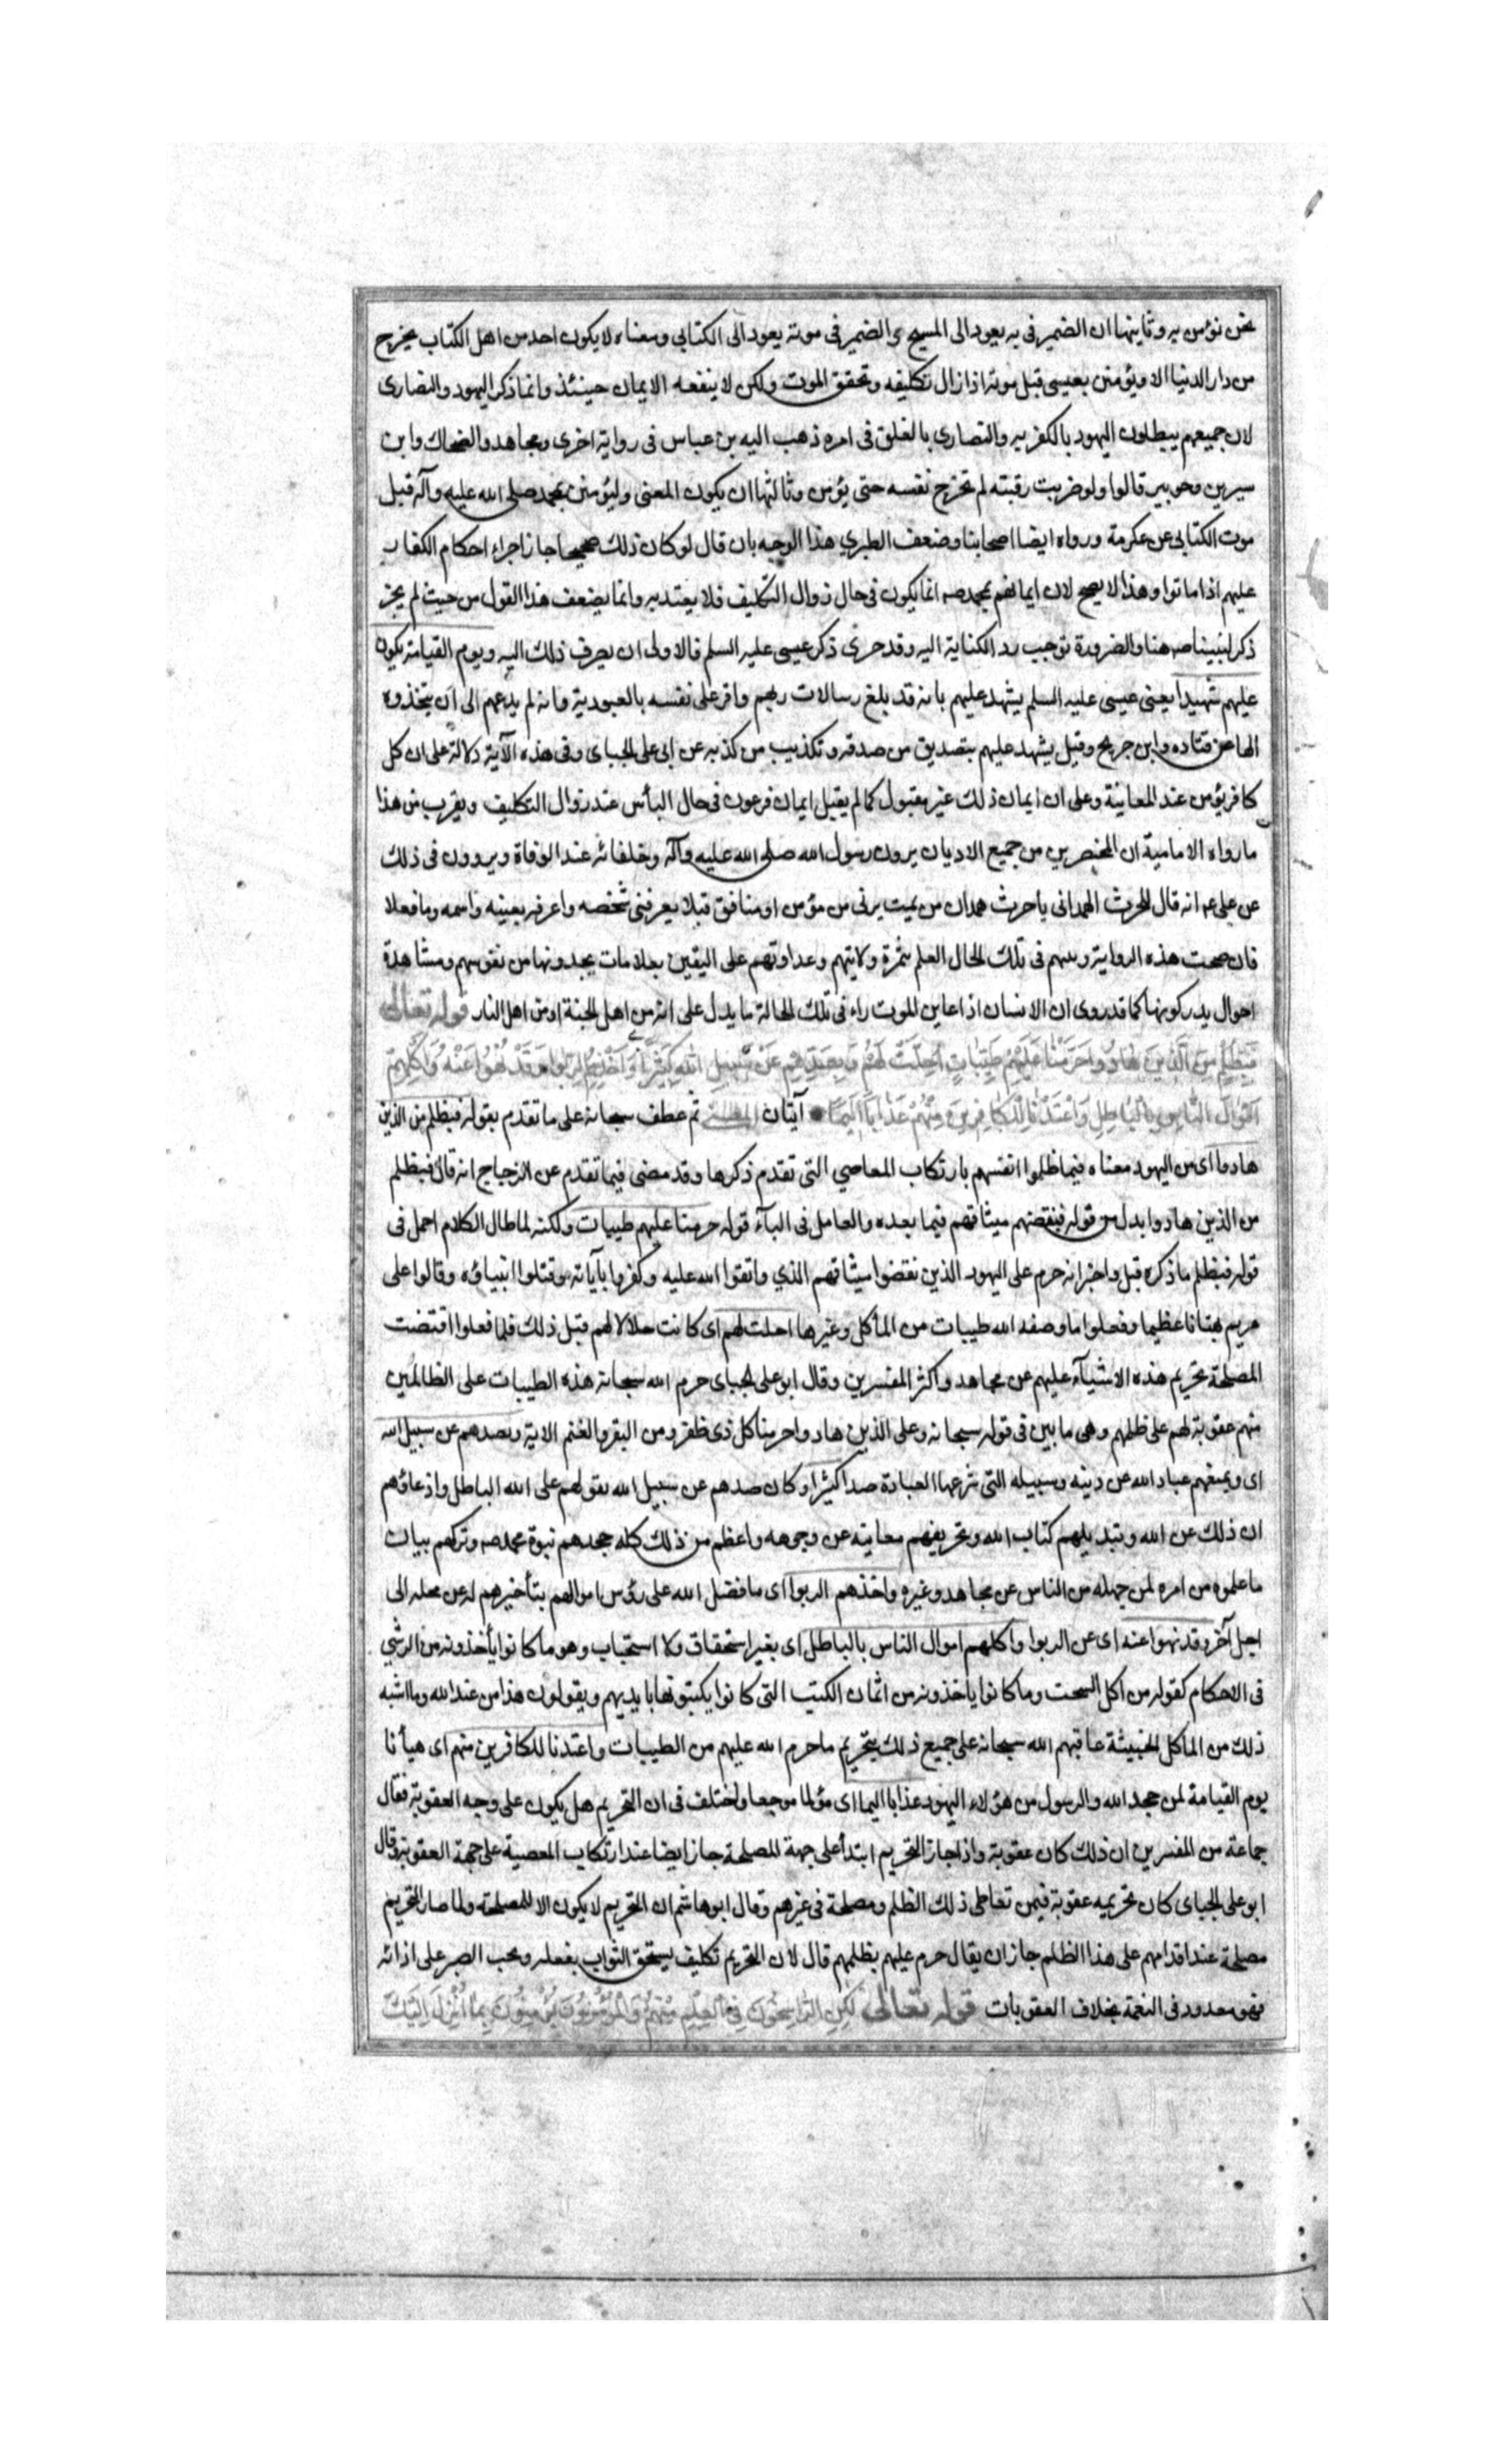 نحن نؤمن به وثانيها ان الضمير فى به يعود الى المسيح و الضمير فى موته يعود الى الكتابي ومعناه لا يكون احد من اهل الكتاب يخرج
من دار الدنيا الا ويؤمنن بعيسى قبل موته اذا زال تكليفه وتحقق الموت ولكن لا ينفعه الايمان حينئذ وانما ذكر اليهود والنصارى
لان جميعهم يبطلون اليهود بالكفر به والنصارى بالغلق فى امره ذهب اليه بن عباس فى رواية اخرى ومجاهد والضحاك وابن
سيرين وجويبر قالوا ولو ضربت رقبته لم تخرج نفسه حتى يؤمن وثالثها ان يكون المعنى وليؤمنن بمحمد صلى الله عليه وآله قبل
موت الكتابى عن عكرمة ورواه ايضا اصحابنا وضعف الطبري هذا الوجه بان قال لو كان ذلك صحيحا جاز اجراء احكام الكفار
عليهم اذا ماتوا وهذا لا يصح لان ايمانهم بمحمد صه انما يكون فى حال زوال التكليف فلا يعتد به وانما يضعف هذا القول من حيث لم يجر
ذكر لنبينا صه هنا والضرورة توجب رد الكناية اليه وقد جرى ذكر عيسى عليه السلم فالاولى ان يصرف ذلك اليه ويوم القيامة يكون
عليهم شهيدا يعنى عيسى عليه السلم يشهد عليهم بانه قد بلغ رسالات ربهم واقر على نفسه بالعبودية وانه لم يدعهم الى ان يتخذوه
الها عن قتاده وابن جريح وقيل يشهد عليهم بتصديق من صدقه وتكذيب من كذبه عن ابى على الجباى وفى هذه الآية دلالة على ان كل
كافر يؤمن عند المعاينة وعلى ان ايمان ذلك غير مقبول كما لم يقبل ايمان فرعون فى حال البأس عند زوال التكليف ويقرب من هذا
ما رواه الامامية ان المحتضرين من جميع الاديان يرون رسول الله صلى الله عليه وآله وخلفائه عند الوفاة ويروون فى ذلك
عن على عه انه قال للحرث الهمدانى يا حرث همدان من يمت يرنى من مؤمن او منافق قبلا يعرفنى شخصه واعرفه بعينه واسمه وما فعلا
فان صحت هذه الرواية فى تلك الحال العلم بثمرة ولايتهم وعداوتهم على اليقين بعلامات يجدونها من نفوسهم ومشاهدة
احوال يدركونها كما قد روى ان الانسان اذا عاين الموت راء فى تلك الحالة ما يدل على انه من اهل الجنة او من اهل النار قوله تعالى
فَبِظُلْمٍ مِنَ الَّذِينَ هَادُوا حَرَّمْنَا عَلَيْهِمْ طَيِّبَاتٍ اُحِلَّتْ لَهُمْ وَبِصَدِّهِمْ عَنْ سَبِيلِ اللهِ كَثِيرًا وَاَخْذِهِمُ الرِّبوا وَقَدْ نُهُوا عَنْهُ وَاَكْلِهِمْ
اَمْوَالَ النَّاسِ بِالْبَاطِلِ وَاَعْتَدْنَا لِلْكَافِرِينَ مِنْهُمْ عَذَابًا اَلِيمًا آيتان المعنى ثم عطف سبحانه على ما تقدم بقوله فبظلم من الذين
هادوا اى من اليهود معناه فيما ظلموا انفسهم بارتكاب المعاصي التى تقدم ذكرها وقد مضى فيما تقدم عن الزجاج انه قال فبظلم
من الذين هادوا بدل من قوله فبنقضهم ميثاقهم فيما بعده والعامل فى البآء قوله حرمنا عليهم طيبات ولكنه لما طال الكلام اجمل فى
قوله فبظلم ما ذكره قبل واخبر انه حرم على اليهود الذين نقضوا ميثاقهم الذي واثقوا الله عليه وكفروا باياته وقتلوا انبياؤه وقالوا على
مريم بهتانا عظيما وفعلوا ما وصفه الله طيبات من المأكل وغيرها احلت لهم اى كانت حلالا لهم قبل ذلك فلما فعلوا اقتضت
المصلحة تحريم هذه الاشيآء عليهم عن مجاهد واكثر المفسرين وقال ابو على الجباى حرم الله سبحانه هذه الطيبات على الظالمين
منهم عقوبة لهم على ظلمهم وهى ما بين فى قوله سبحانه وعلى الذين هادوا حرمنا كل ذى ظفر ومن البقر والغنم الاية وبصدهم عن سبيل الله
اى وبمنعهم عباد الله عن دينه وسبيله التى شرعها لعباده صدا كثيرا وكان صدهم عن سبيل الله بقولهم على الله الباطل وادعاؤهم
ان ذلك عن الله وتبديلهم كتاب الله وتحريفهم معانيه عن وجوهه واعظم من ذلك كله جحدهم نبوة محمد صه وتركهم بيان
ما علموه من امره لمن جهله من الناس عن مجاهد وغيره واخذهم الربوا اى ما فضل الله على رؤس اموالهم بتأخيرهم له عن محله الى
اجل آخر وقد نهوا عنه اى عن الربوا واكلهم اموال الناس بالباطل اى بغير استحقاق ولا استيجاب وهو ما كانوا يأخذونه من الرشى
فى الاحكام كقوله من اكل السحت وما كانوا ياخذونه من اثمان الكتب التى كانوا يكتبونها بايديهم ويقولون هذا من عند الله وما اشبه
ذلك من الماكل الخبيثة عاقبهم الله سبحانه على جميع ذلك بتحريم ما حرم الله عليهم من الطيبات واعتدنا للكافرين منهم اى هيأنا
يوم القيامة لمن جحد الله والرسول من هؤلاء اليهود عذابا اليما اى مؤلما موجعا واختلف فى ان التحريم هل يكون على وجه العقوبة فقال
جماعة من المفسرين ان ذلك كان عقوبة واذا جاز التحريم ابتدأ على جهة المصلحة جاز ايضا عند ارتكاب المعصية على جهة العقوبة وقال
ابو على الجباى كان تحريمه عقوبة فيمن تعاطى ذلك الظلم ومصلحة فى غيرهم وقال ابو هاشم ان التحريم لا يكون الا للمصلحة ولما صار التحريم
مصلحة عند اقدامهم على هذا الظلم جاز ان يقال حرم عليهم بظلمهم قال لان التحريم تكليف يستحق الثواب بفعله ويجب الصبر على ادائه
فهو معدود فى النعمة بخلاف العقوبات قوله تعالى لٰكِنِ الرَّاسِخُونَ فِى الْعِلْمِ مِنْهُمْ وَالْمُؤْمِنُونَ يُؤْمِنُونَ بِمَا اُنْزِلَ اِلَيْكَ